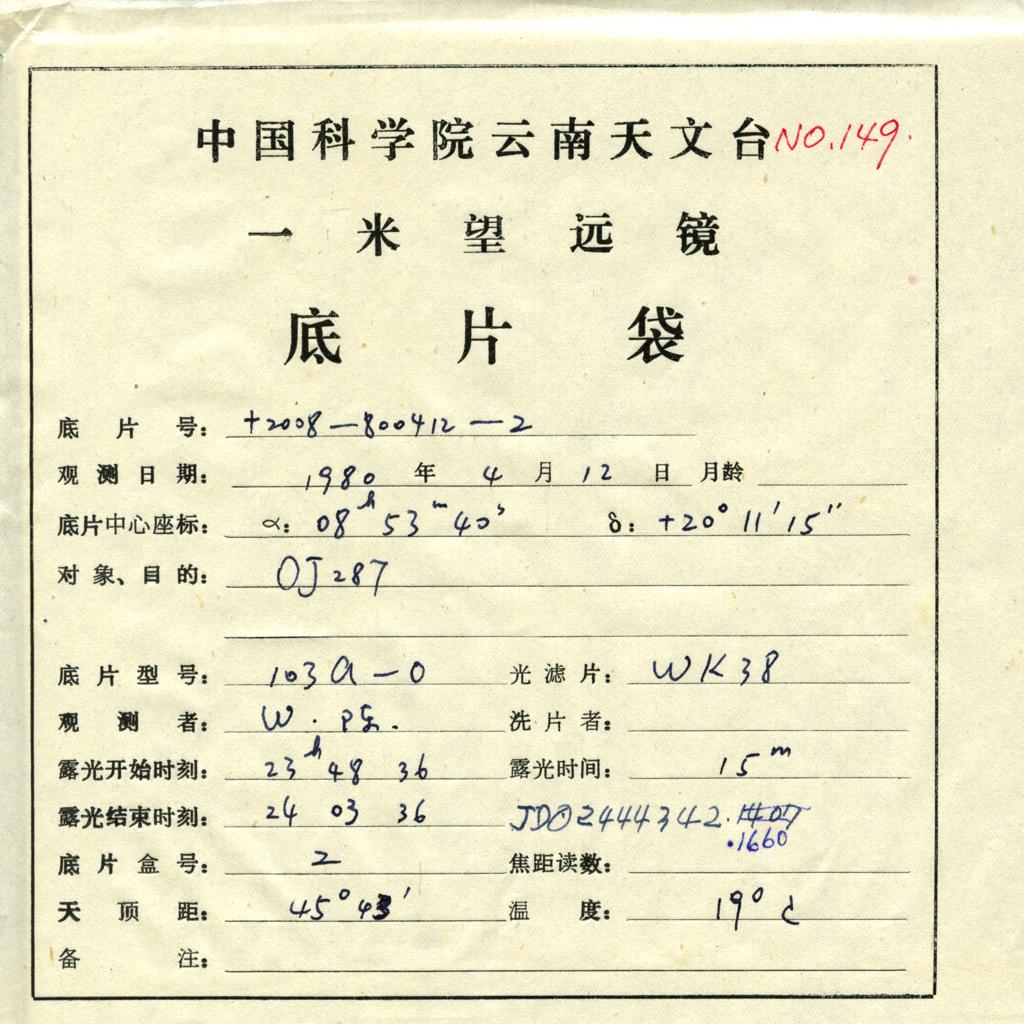 中国科学院云南天文台 NO.149.
一米望远镜
底片袋
底片号: +2008-800412-2
观测日期: 1980 年 4 月 12 日 月龄
底片中心座标: α: 08h 53m 40s δ: +20° 11′ 15″
对象、目的: OJ287
底片型号: 103a-O 光滤片: WK38
观测者: W. 洗片者:
露光开始时刻: 23h 48 36 露光时间: 15m
露光结束时刻: 24 03 36 JD☉2444342.1407
.1660
底片盒号: 2 焦距读数:
天顶距: 45° 43′ 温度: 19°C
备注: